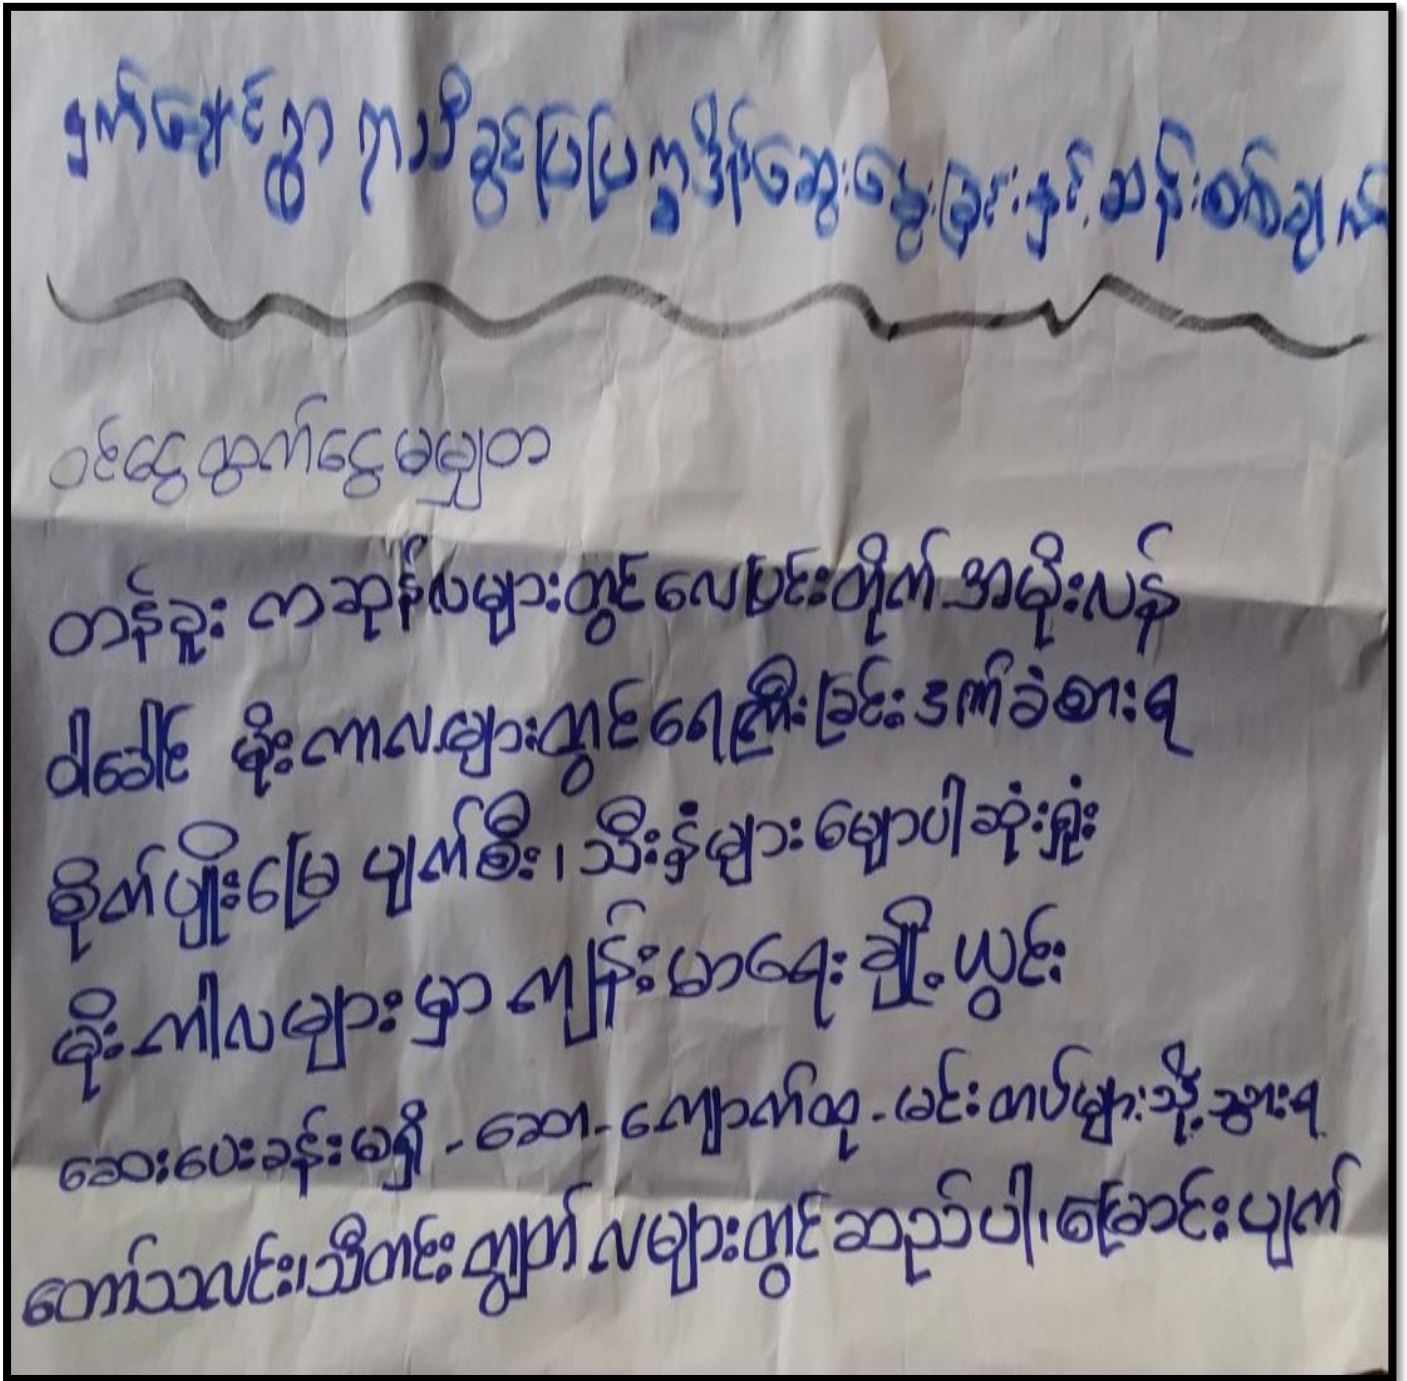 ငှက်ချောင်ရွာ ရာသီခွင်ပြပြက္ခဒိန်ဆွေးနွေးခြင်းနှင့် ဆန်းစစ်ချက်
ဝင်ငွေထွက်ငွေမမျှတ
တန်ခူး ကဆုန်လများတွင် လေပြင်းတိုက် အမိုးလန်
ဝါခေါင် မိုးကာလများတွင် ရေကြီးခြင်းဒဏ်ခံစားရ
စိုက်ပျိုးမြေ ပျက်စီး၊ သီးနှံများ မျောပါဆုံးရှုံး
မိုးကါလများမှာ ကျန်းမာရေး ချို့ယွင်း
ဆေးပေးခန်းမရှိ - ဆော - ကျောက်ထု - မင်းတပ်များသို့ သွားရ
တော်သလင်း၊ သီတင်းကျွတ် လများတွင် ဆည်ပါ၊ မြောင်းပျက်